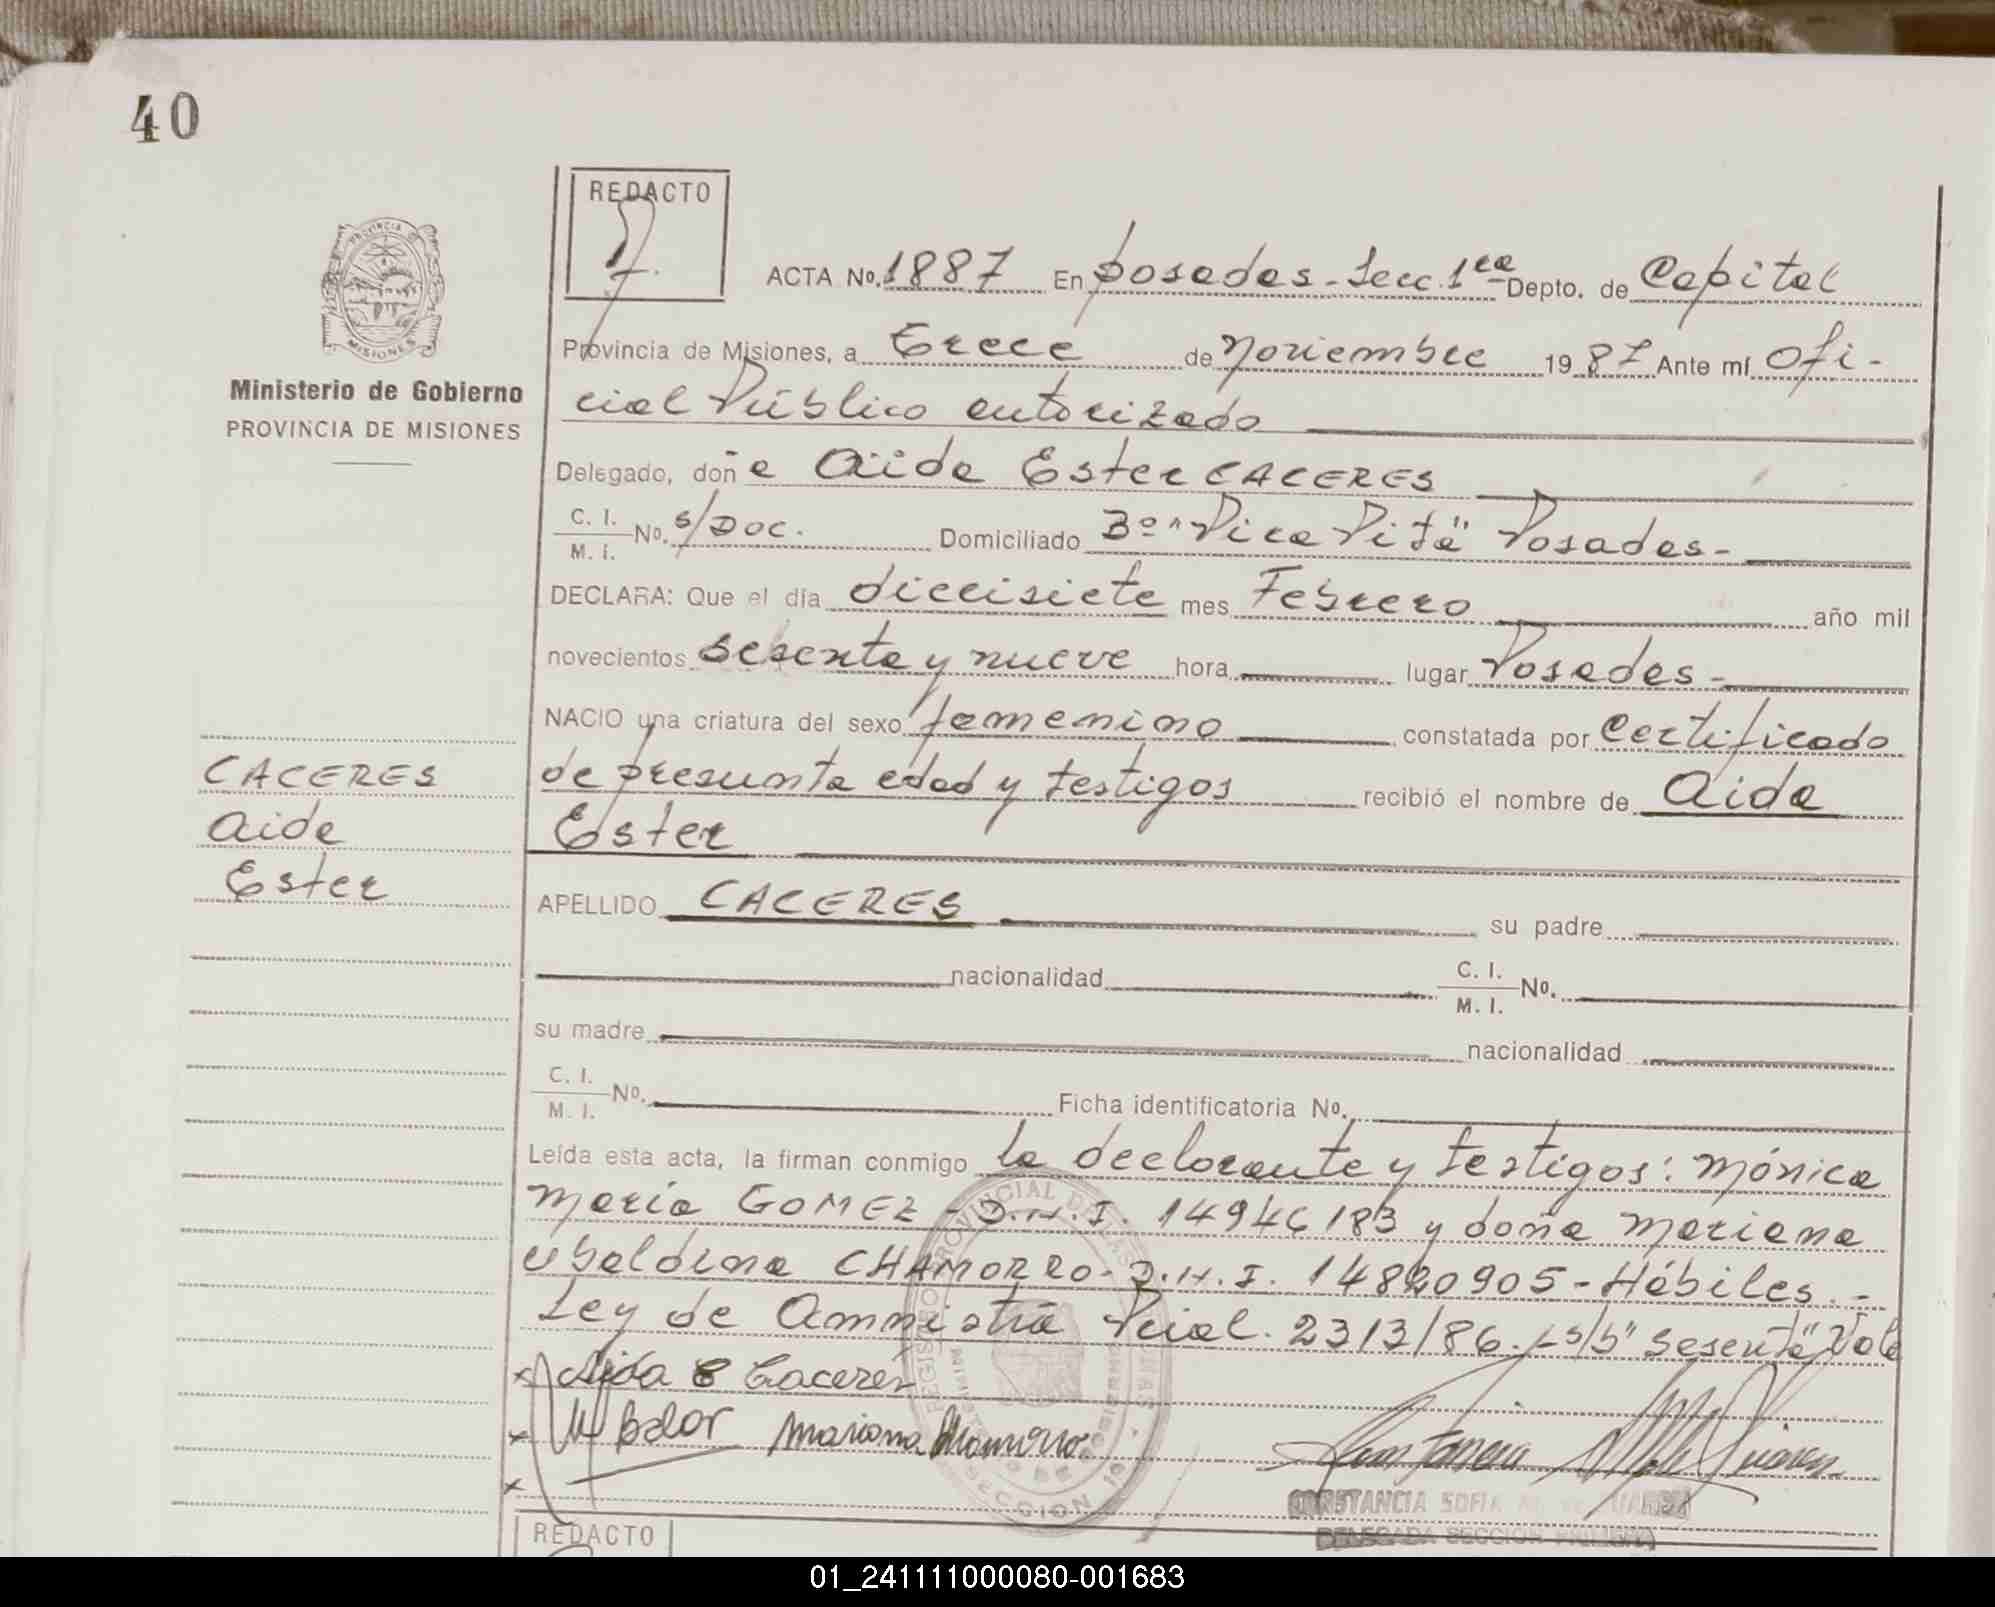 40
REDACTO
ACTA No. 1887 En Posadas - Secc. 1ra Depto. de Capital
Provincia de Misiones, a trece de noviembre 1987 Ante mí Ofi-
cial Público autorizado
PROVINCIA DE MISIONES
Ministerio de Gobierno
PROVINCIA DE MISIONES
Delegado, doña Aida Ester CACERES
C. I. / M. I. No. S/DOC. Domiciliado Bo "Pica Pitá" Posadas -
DECLARA: Que el día diecisiete mes Febrero año mil
novecientos sesenta y nueve hora lugar Posadas -
NACIO una criatura del sexo femenino constatada por Certificado
de presunta edad y testigos recibió el nombre de Aida
Ester
CACERES
Aida
Ester
APELLIDO CACERES su padre
nacionalidad C. I. / M. I. No.
su madre nacionalidad
C. I. / M. I. No. Ficha identificatoria No.
Leída esta acta, la firman conmigo la declarante y testigos: Mónica
María GOMEZ - D.N.I. 14946183 y doña Mariana
Ubaldina CHAMORRO - D.N.I. 14820905 - Hábiles. -
Ley de Amnistía Pcial. 2313/86. - S/b "sesenta" Vale
x Aida E Caceres
x Mariana Chamorro
x
CONSTANCIA SOFIA
DELEGADA SECCION PRIMERA
REDACTO
01_241111000080-001683